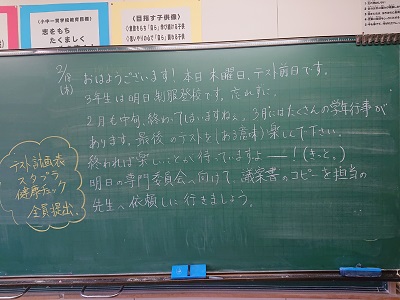 (小中一貫学校教育目標)
志をもち
たくましく
《目指す子供像》
2/18
(木)
おはようございます！本日木曜日、テスト前日です。
3年生は明日制服登校です。忘れずに。
2月も中旬、終わってしまいますねぇ、3月にはたくさんの学年行事が
あります。最後のテストを(ある意味)楽しんで下さい。
終われば楽しいことが待っていますよ――！(きっと。)
明日の専門委員会へ向けて、議案書のコピーを担当の
先生へ依頼しに行きましょう。
テスト計画表
スタプラ
健康チェック
全員提出。